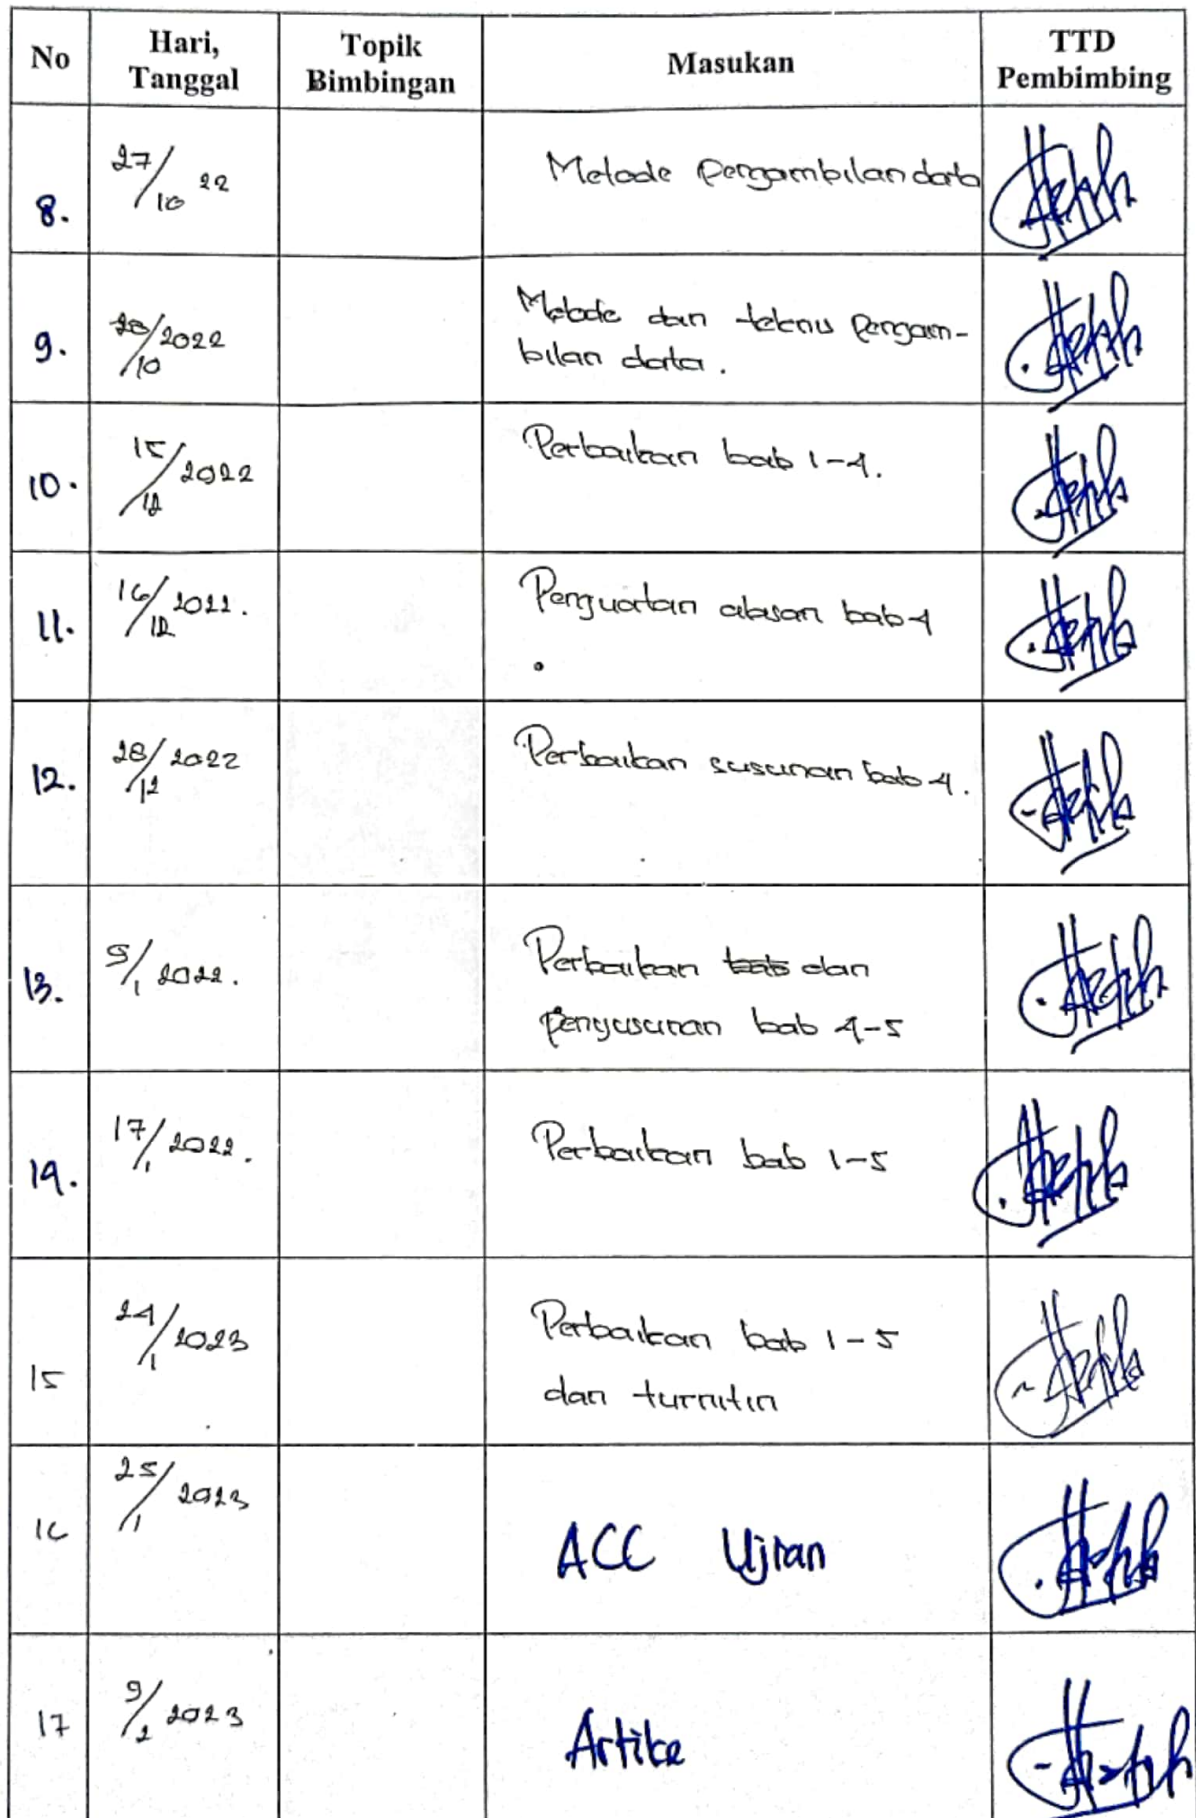 No Hari, Tanggal Topik Bimbingan Masukan TTD Pembimbing
8. 27/10 22 Metode pengambilan data
9. 28/10 2022 Metode dan teknis pengam-
bilan data.
10. 15/12 2022 Perbaikan bab 1-4.
11. 16/12 2022. Penguatan alasan bab 4
12. 28/12 2022 Perbaikan susunan bab 4.
13. 5/1 2022. Perbaikan bab dan
penyusunan bab 4-5
14. 17/1 2022. Perbaikan bab 1-5
15 24/1 2023 Perbaikan bab 1-5
dan turnitin
16 25/1 2023 ACC Ujian
17 9/2 2023 Artike